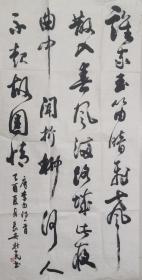 谁家玉笛暗飞声
散入春风满洛城此夜
曲中闻折柳何人
不起故园情
唐李白诗一首